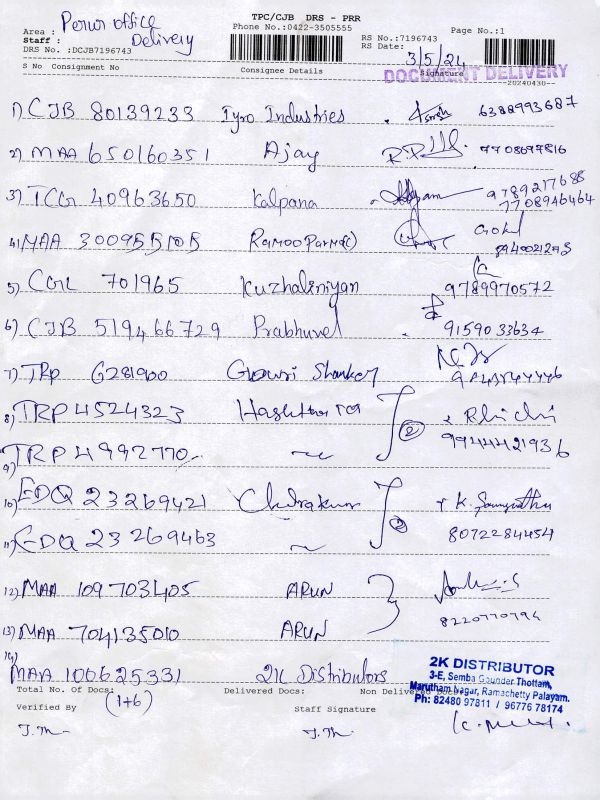 TPC/CJB DRS - PRR
Perur office
Area :
Phone No.:0422-3505555
Page No.:1
Staff :
Delivery
RS No.:7196743
DRS No. :DCJB7196743
RS Date:
3/5/24
DOCUMENT DELIVERY
S No Consignment No
Consignee Details
Signature
--20240430--
1) CJB 80139233 Tyro Industries 6388993687
2) MAA 650160351 Ajay 7708697816
3) TCR 40963650 Kalpana 9789217688
7708946464
4) MAA 300955105 Gokul
5) CGL 701965 Kuzhaliniyan 9789970572
6) CJB 519466729 Prabhuvel 9159033634
7) TRP 6281900 Gowri Shanker
8) TRP 4524323
9) TRP 4992770 9944421936
②
10) EDQ 23269421
11) EDQ 23269463 8072284454
②
12) MAA 109703405 ARUN
13) MAA 704135010 ARUN 8220770794
14) MAA 100625331 2K Distributors
Total No. Of Docs:
Delivered Docs:
Non Delivered
(1+6)
Verified By
Staff Signature
2K DISTRIBUTOR
3-E, Semba Gounder Thottam,
Marutham Nagar, Ramachetty Palayam.
Ph: 82480 97811 / 96776 78174